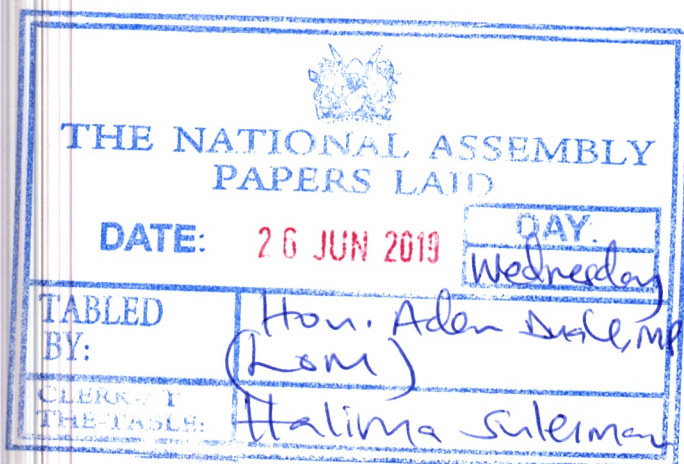 THE NATIONAL ASSEMBLY
PAPERS LAID
DATE: 26 JUN 2019 DAY.
Wednesday
TABLED BY: Hon. Aden Duale, MP
(LOM)
CLERK-AT THE-TABLE: Halima Suleiman